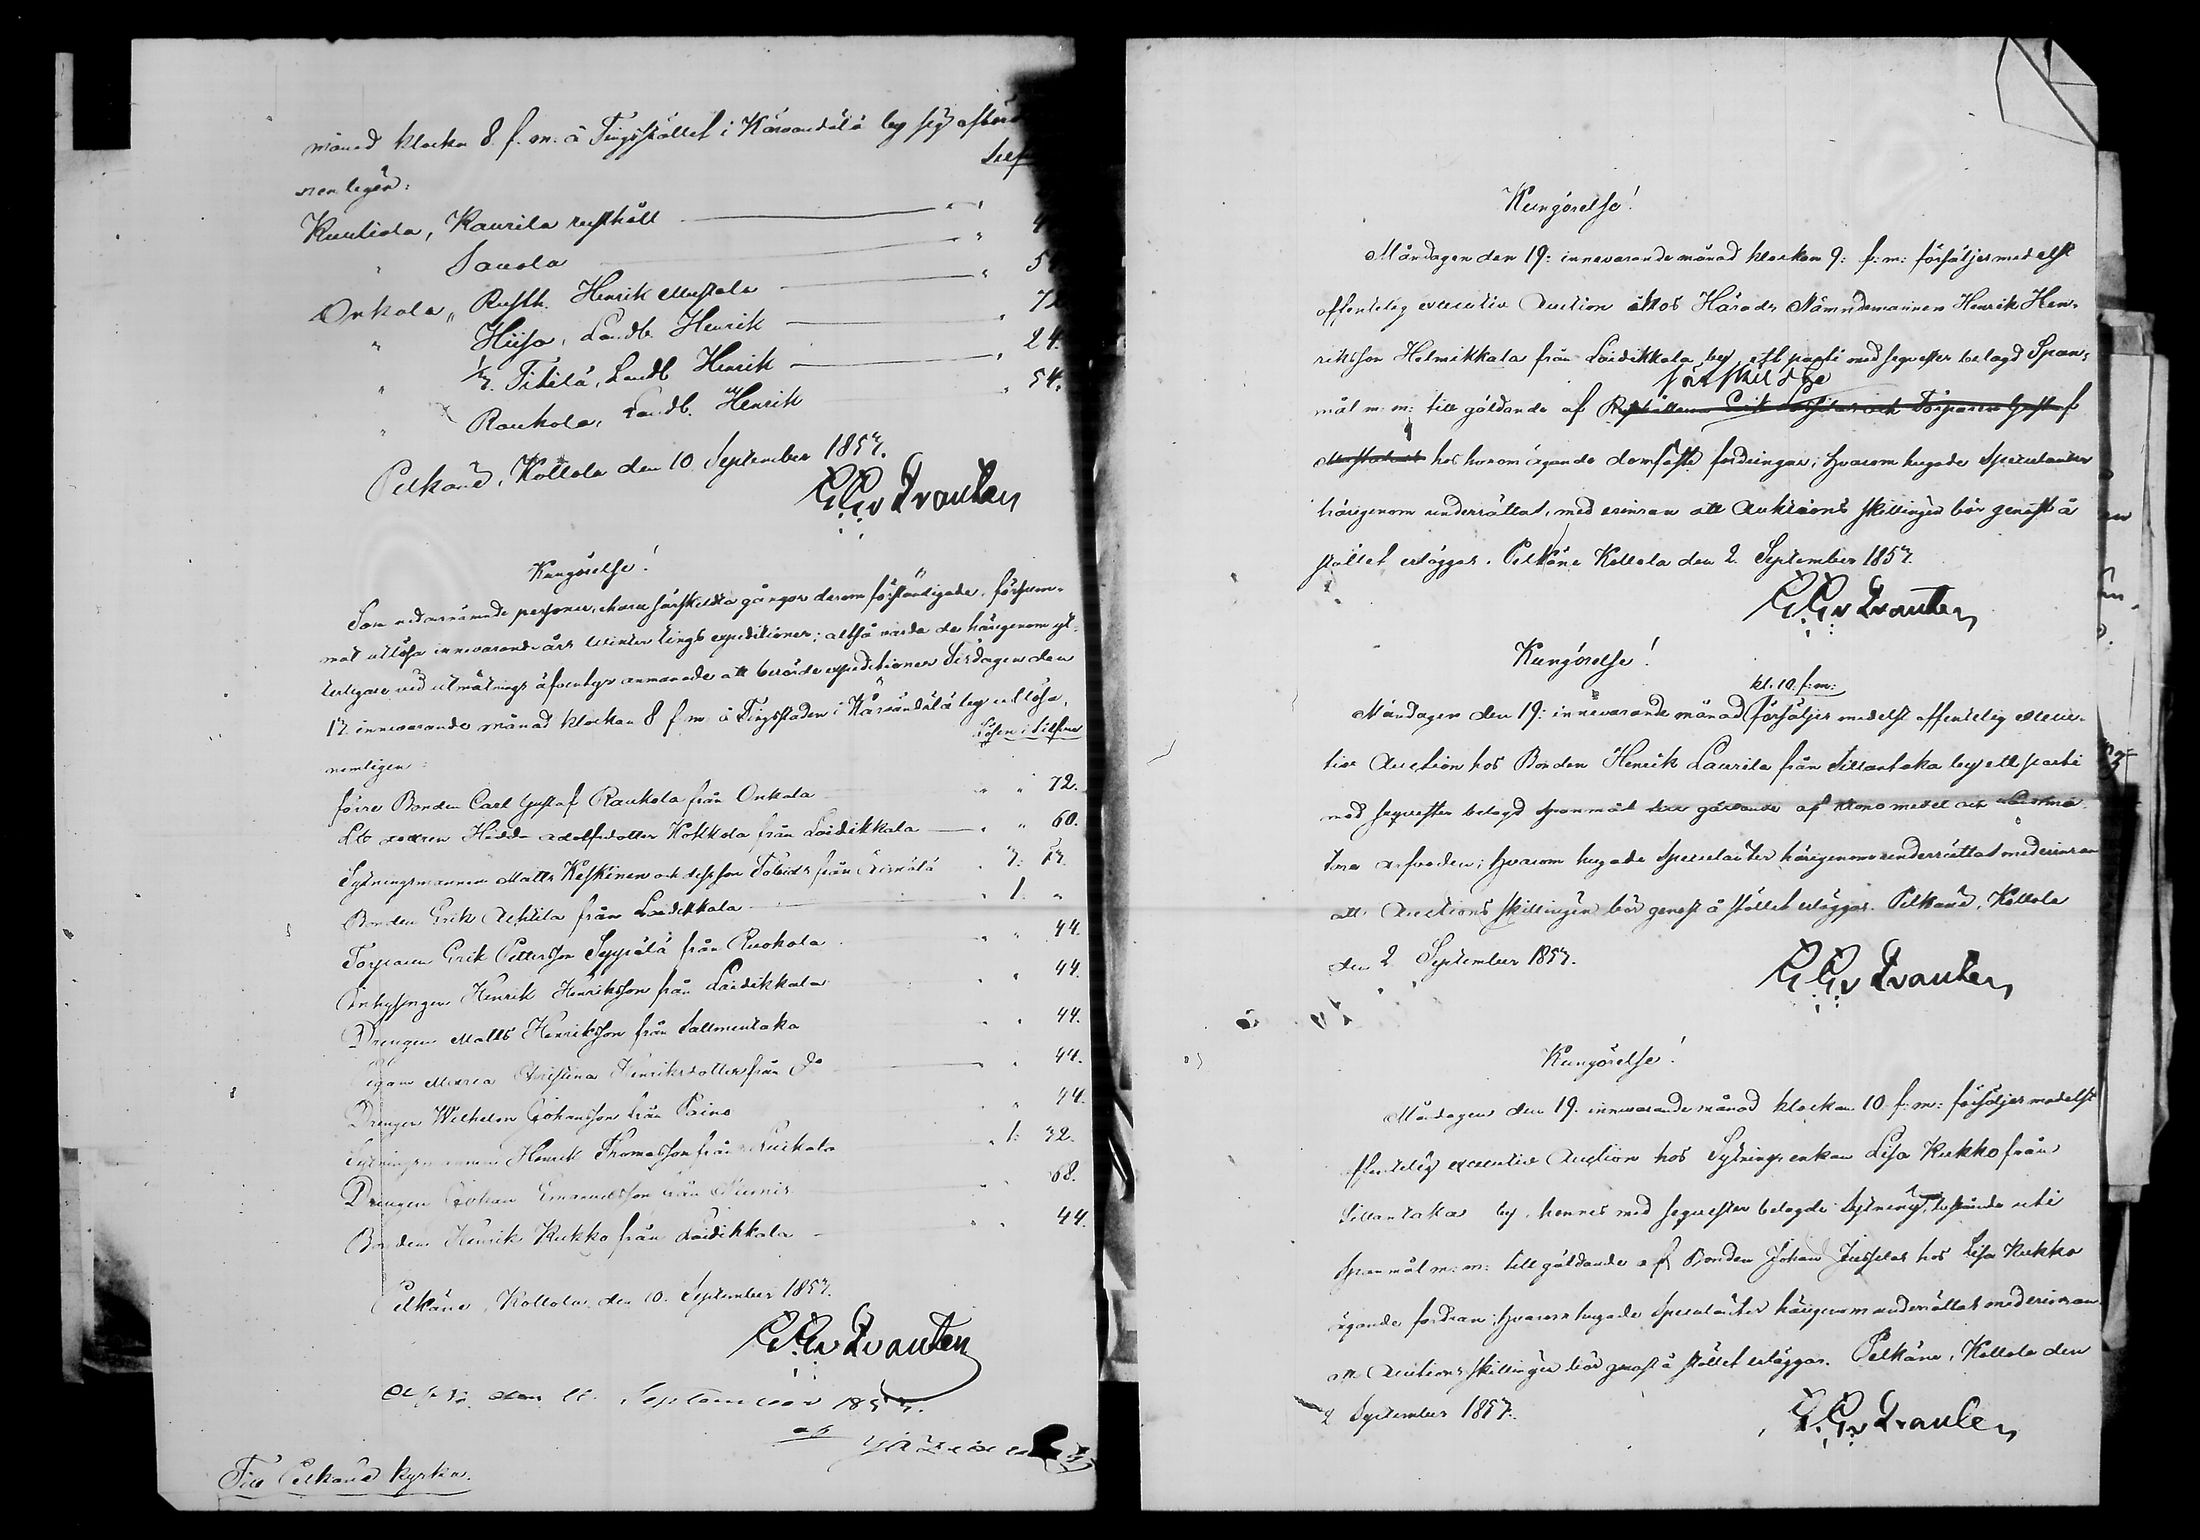 månad klockan 8. f. m. å Tingsstället i Kärvändälä by sig
Silf
nemligen:
Kuuliala, Kaurila rusthåll
" Saxola
Onkala, Rusth. Henrik Mustala
" Hiisa, Landb. Henrik 24.
" Titilä, Landb Henrik 54.
" Raukola, Landb. Henrik
Pelkäne, Kollola den 10 September 1857.
G. G. v Qvanten
Kungörelse!
Som nedannämnde personer, ehuru särskilta gånger derom förständigade, försum-
mat utlösa innevarande års Winter tings expeditioner; altså varda de härigenom yt-
terligare vid utmätnings äfventyr anmanade att berörde expeditioner Lördagen den
12 innevarande månad klockan 8 f m å Tingsstaden i Kärvändälä by utlösa,
Lösen i Silfver
nemligen:
förre Bonden Carl Gustaf Raukola från Onkala " " 72.
Hedda Adolfsdotter Kokkola från Laidikkala " " 60.
Sytningsmannen Matts Keskinen och dess son Tobias från
Bonden Erik Achtila från Laidikkala " 1. "
Torparen Erik Pettersson Seppälä från Ruokola " " 44.
Inhysingen Henrik Henriksson från Laidikkala " " 44.
Drengen Matts Henriksson från Salmentaka " " 44.
Pigan Maria Christina Henriksdotter från do " " 44.
Drengen Wilhelm Johansson från Paino " " 44.
Sytningsmannen Henrik Thomasson från " 1: 32.
Drengen Johan Emanuelsson från " " 68.
Bonden Henrik Kukko från Laidikkala " " 44.
Pelkäne, Kollola den 10. September 1857.
G. G. v Qvanten
den September 1857.
af
Till Pelkäne kyrka.
Kungörelse!
Måndagen den 19: innevarande månad klockan 9: f: m: försäljes medelst
offentelig executiv Auction hos Härads Nämndemannen Henrik Hen-
riksson Helmikkala från Laidikkala by, ett parti med sequester belagd Span-
särskildte
mål m: m: till gäldande af Rusthållaren Erik och Torparen Gustaf
hos honom ägande domfäste fordringar; hvarom hugade Speculanter
härigenom underrättas, med erinran att Auktions skillingen bör genast å
stället erläggas. Pelkäne Kollola den 2. September 1857.
G. G. v Qvanten
Kungörelse!
kl. 10. f: m:
Måndagen den 19: innevarande månad försäljes medelst offentelig execu-
tiv Auction hos Bonden Henrik Laurila från Sittantaka by ett parti
med sequester belagd Spanmål till gäldande af Krono medel och
tora arfvoden; hvarom hugade Speculanter härigenom underrättas med erinran
att Auctions skillingen bör genast å stället erläggas. Pelkäne, Kollola
den 2 September 1857.
G. G. v Qvanten
Kungörelse!
Måndagen den 19. innevarande månad klockan 10 f: m: försäljes medelst
offentelig executiv Auction hos Sytningsenkan Lisa Kukko från
Sittantaka by, hennes med sequester belagde Sytning, bestående uti
Spanmål m: m: till gäldande af Bonden Johan Jussilas hos Lisa Kukko
ägande fordran; hvarom hugade Speculanter härigenom underrättas med erinran
att Auctions skillingen bör genast å stället erläggas. Pelkäne, Kollola den
2 September 1857.
G. G. v Qvanten